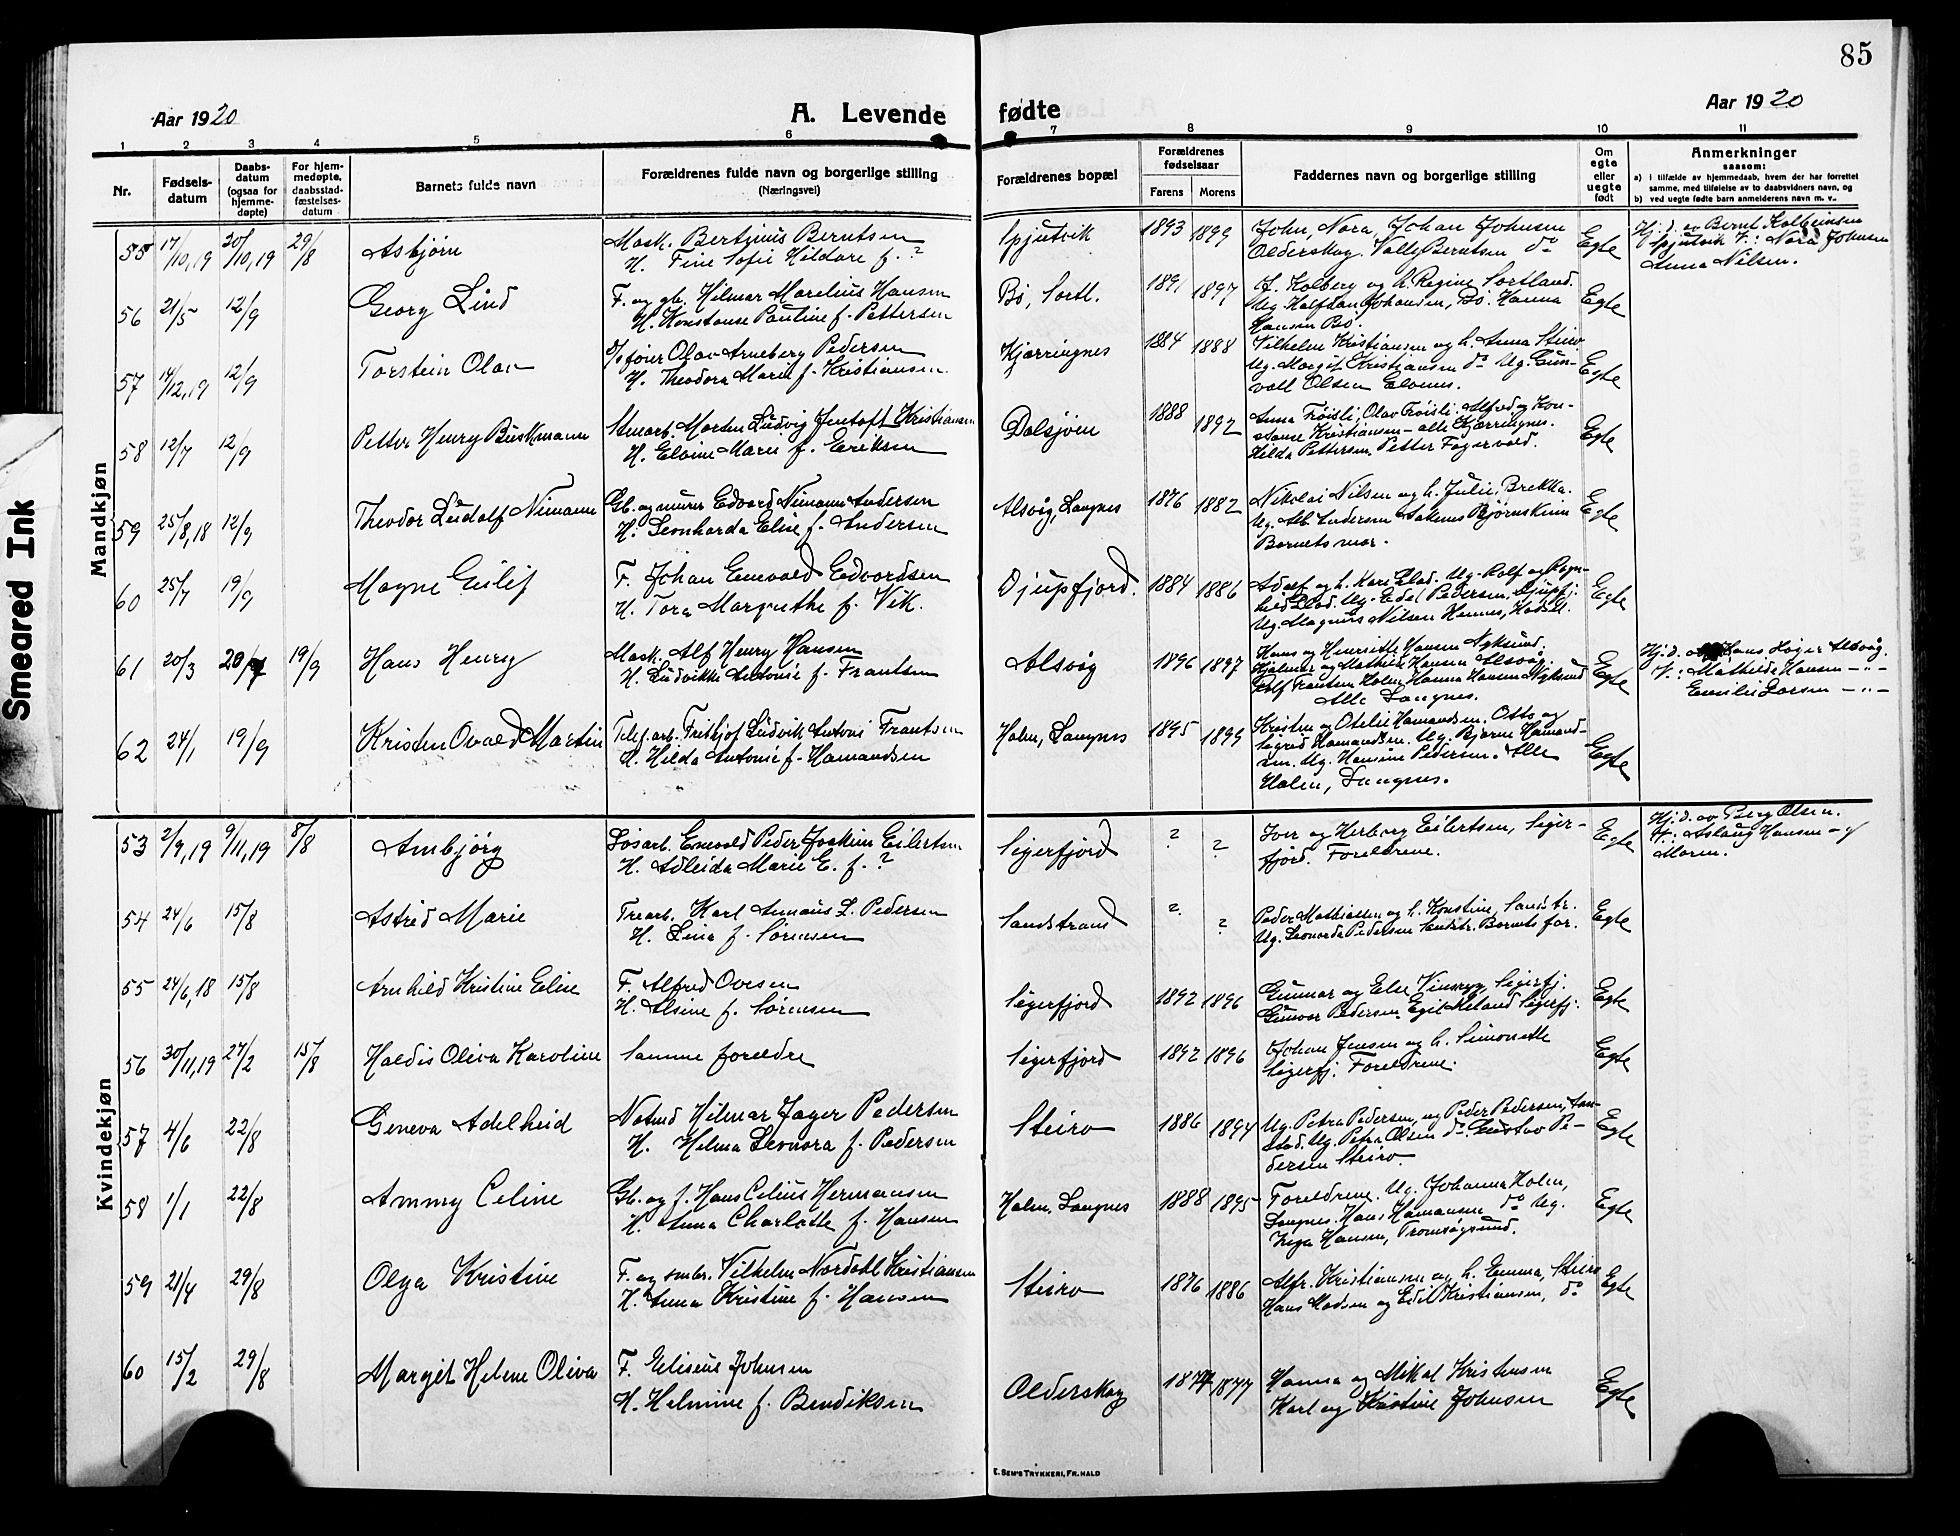 85
Aar 1920
A. Levende fødte
Aar 1920
1 2 3 4 5 6 7 8 9 10 11
Nr.
Fødsels-
datum
Daabs-
datum
(ogsaa for
hjemme-
døpte)
For hjem-
medøpte,
daabsstad-
fæstelses-
datum
Barnets fulde navn
Forældrenes fulde navn og borgerlige stilling
(Næringsvei)
Forældrenes bopæl
Forældrenes
fødselsaar
Farens Morens
Faddernes navn og borgerlige stilling
Om
egte
eller
uegte
født
Anmerkninger
saasom:
a) i tilfælde av hjemmedaab, hvem der har forrettet
samme, med tilføielse av to daabsvidners navn, og
b) ved uegte fødte barn anmelderens navn m. v..
Smeared Ink
Mandkjøn
55 17/10,19 30/10,19 29/8 Asbjørn
Mask. Bertinius Berntsen
H. Fine Sofie Hildore f. ?
Spjutvik 1893 1899
John, Nora, Johan Johnsen
Olderskog. Vally Berntsen do
Egte
Hj.d. av Bernt Kolbeinsen
Spjutvik V.: Nora Johnsen
Anna Nilsen.
56 21/5 12/9 Georg Lind
F. og gb. Hilmar Marelius Hansen
H. Konstanse Pauline f. Pettersen
Bø, Sortl. 1891 1897
J. Kolberg og h. Regine Sortland.
Ug. Halfdan Johansen, Bø. Hanna
Hansen Bø.
Egte
57 14/12,19 12/9 Torstein Olav
Olav Arneberg Pedersen
H. Theodora Marie f. Kristiansen.
Kjærringnes 1884 1888
Vilhelm Kristiansen og h. Anna Steiro
Ug. Margit Kristiansen do Ug. Gun-
vall Olsen Elvenes.
Egte
58 12/7 12/9 Petter Henry Buskmann
Stenarb. Morten Ludvig Jentoft Kristiansen
H. Elvine Marie f. Eriksen
Dalsjøen 1888 1892
Anna Frøisli, Olav Frøisli. Alfred og Kon-
stanse Kristiansen - alle Kjærringnes.
Hilda Pettersen, Petter Fagervold.
Egte
59 25/8,18 12/9 Theodor Ludolf Nimann
Gb. og murer Edvard Nimann Andersen
H. Leonharda Elise f. Andersen
Alsvåg, Langnes 1876 1882
Nikolai Nilsen og h. Julie, Brekka.
Ug. Alb. Andersen Bjørnskinn
Barnets mor.
Egte
60 25/7 19/9 Magne Eilif
F. Johan Enevald Edvardsen
H. Tora Margrethe f. Vik.
Djupfjord. 1884 1886
Adolf og h. Kari Blad. Ug. Rolf og Ragn-
hild Blad. Ug. Edel Pedersen, Djupfj.
Ug. Magnus Nilsen Hennes, Hadsel.
Egte
61 20/3 20/4 19/9 Hans Henry
Mask. Alf Henry Hansen
H. Ludvikke Antonie f. Frantsen
Alsvåg 1896 1897
Hans og Henriette Hansen Nyksund.
Hjalmar og Mathilde Hansen Alsvåg.
Rolf Frantsen Holm, Hanna Hansen Nyksund
Alle Langnes.
Egte
Hj.d. av Hans Alsvåg.
V.: Mathilde Hansen -"-
Emilie Larsen -"-
62 24/1 19/9 Kristen Ovald Martin
Telef.arb. Fritjof Ludvik Antoni Frantsen
H. Hilda Antonie f. Hamandsen
Holm, Langnes 1895 1899
Kristen og Otelie Hamandsen. Otto og
Sigrid Hamandsen. Ug. Bjarne Hamand-
sen. Ug. Hansine Pedersen. Alle
Holm, Langnes.
Egte
Kvindekjøn
53 2/9,19 9/11,19 8/8 Arnbjørg
Løsarb. Enevold Peder Joakim Eilertsen
H. Adleida Marie E. f. ?
Sigerfjord ? ?
Iver og Herborg Eilertsen, Siger-
fjord. Foreldrene.
Egte
Hj.d. av Berg Olsen.
V.: Aslaug Hansen og
Moren.
54 24/6 15/8 Astrid Marie
Trearb. Karl Amaus L. Pedersen
H. Lina f. Sørensen
Sandstrand ? ?
Peder Mathiassen og h. Konstine, Sandstr.
Ug. Leonarda Pedersen Sandstr. Barnets far.
Egte
55 24/6,18 15/8 Arnhild Kristine Eline
F. Alfred Ovesen
H. Alsine f. Sørensen
Sigerfjord 1892 1896
Gunnar og Else Vinnyg, Sigerfj.
Gunvor Pedersen, Egil Meland Sigerfj.
Egte
56 30/11,19 27/2 15/8 Haldis Oliva Karoline
Samme foreldre
Sigerfjord 1892 1896
Johan Jensen og h. Simonette
Sigerfj. Foreldrene.
Egte
57 4/6 22/8 Geneva Adelheid
Notmd Hilmar Jager Pedersen
H. Helma Leonora f. Pedersen
Steiro 1886 1894
Ug. Petra Pedersen, og Peder Pedersen, San-
stad. Ug. Petra Olsen do. Gustav Pe-
dersen Steiro.
Egte
58 1/1 22/8 Ammy Celine
Gb. og f. Hans Celius Hermansen
H. Anna Charlotte f. Hansen
Holm, Langnes 1888 1895
Foreldrene. Ug. Johanna Holm,
Langnes. Hans Hamansen do Ug.
Inga Hansen, Tromsøysund.
Egte
59 21/4 29/8 Olga Kristine
F. og smbr. Vilhelm Nordahl Kristiansen
H. Anna Kristine f. Hansen
Steiro 1876 1886
Alfr. Kristiansen og h. Emma, Steiro
Hans Madsen og Edil Kristiansen, do
Egte
60 15/2 29/8 Margit Helene Oliva
F. Eliseus Johnsen
H. Helmine f. Bendiksen
Olderskog 1874 1877
Hanna og Mikal Kristensen
Karl og Kristine Johnsen
Egte
E. SEM'S TRYKKERI, FR.HALD